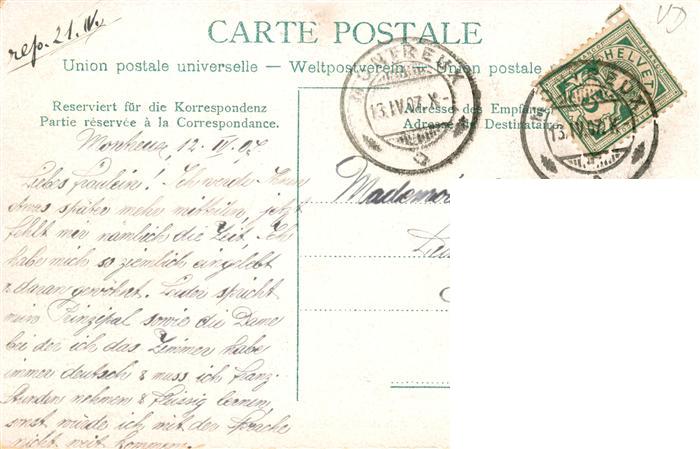 rep. 21. IV.
VD
CARTE POSTALE
Union postale universelle — Weltpostverein — Union postale
HELVETIA
5
MONTREUX
13.IV.07.X-
MONTREUX
13.IV.07.X-
Reserviert für die Korrespondenz
Partie réservée à la Correspondance.
Adresse des Empfäng
Adresse du Destinataire
Montreux, 12. IV. 07
Liebes Fräulein! Ich werde Ihnen
etwas später mehr mitteilen, jetzt
fehlt mir nämlich die Zeit. Ich
habe mich so ziemlich eingelebt
& daran gewöhnt. Leider spricht
mein Prinzipal sowie die Dame
bei der ich das Zimmer habe
immer deutsch & muss ich franz.
Stunden nehmen & fleissig lernen,
sonst würde ich mit der Sprache
nicht weit kommen.
Mademoi